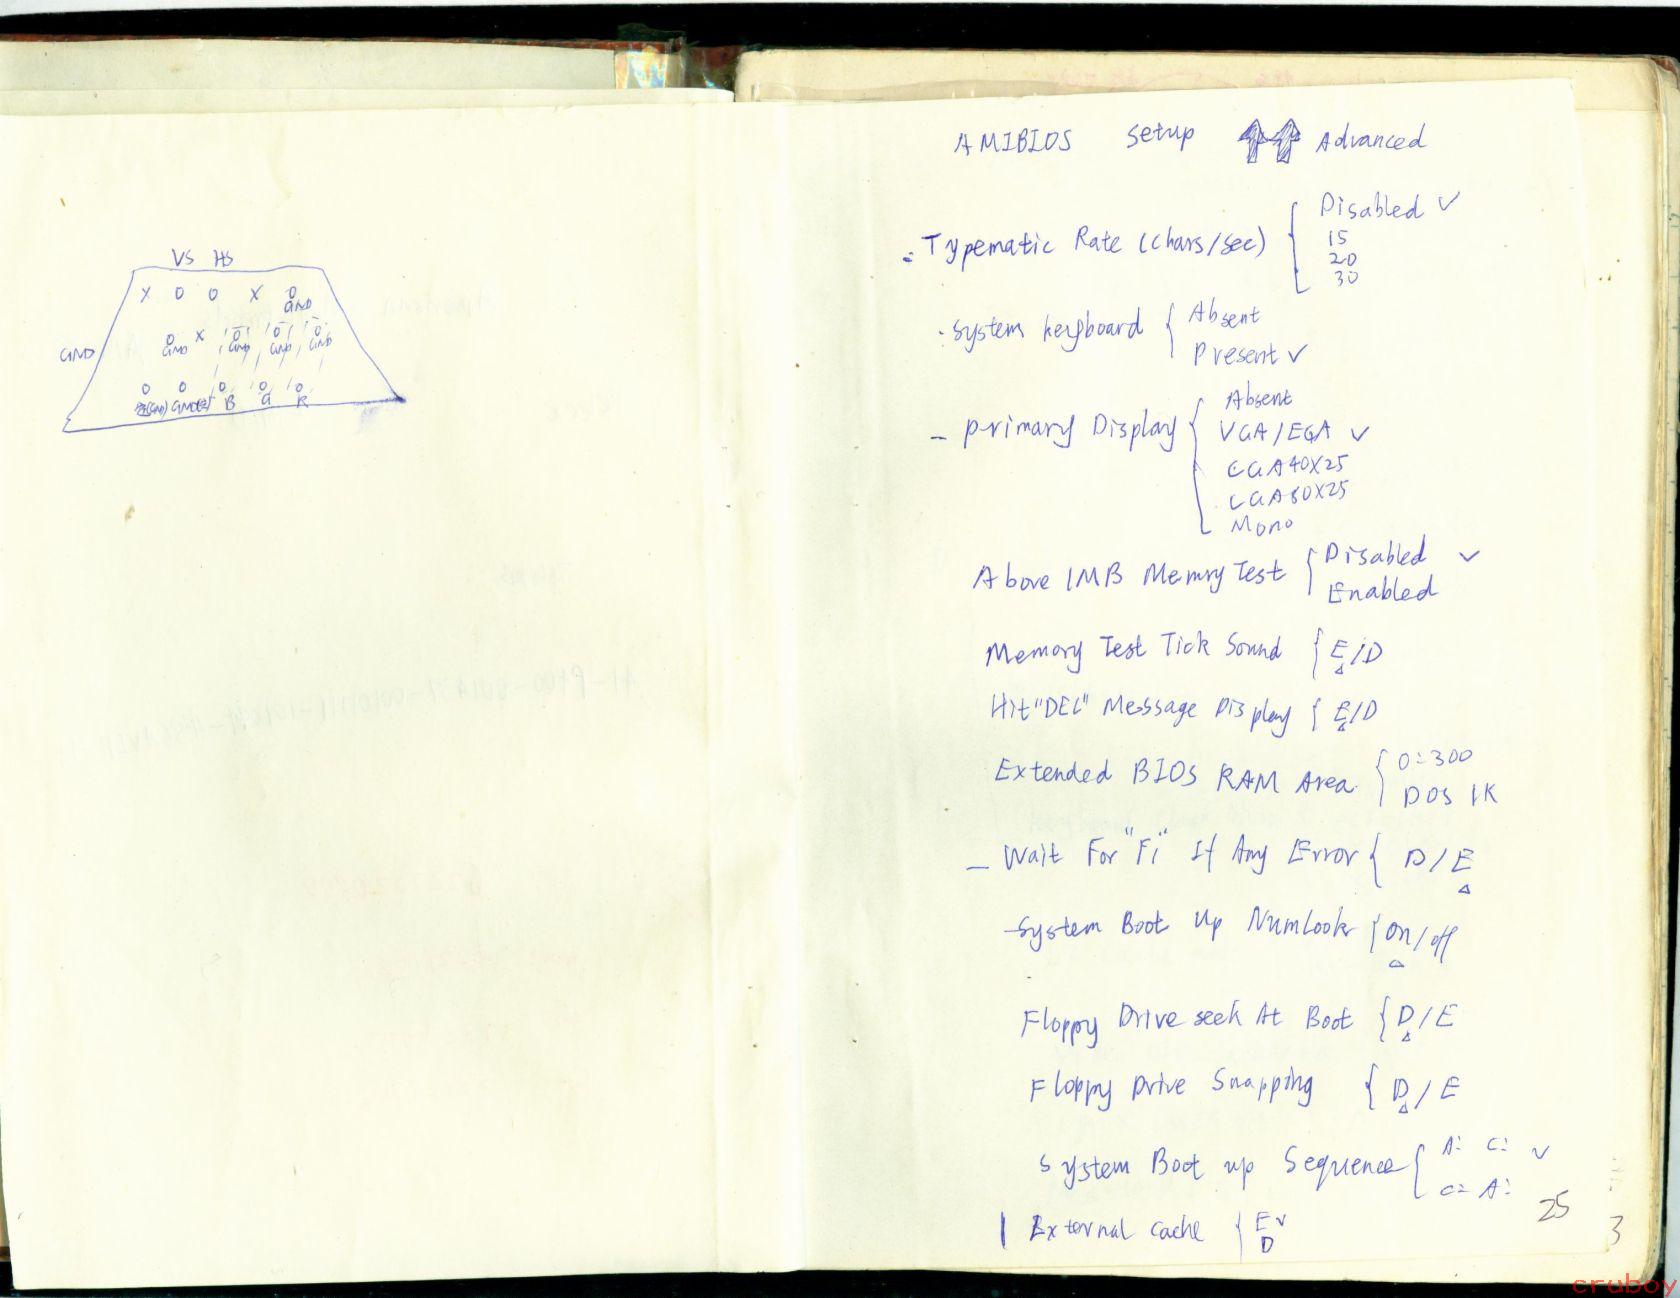 VS HS
X O O X O
GND
O X O O O
GND GND GND GND
GND
O O O O O
B G R
AMIBIOS setup Advanced
Typematic Rate (chars/sec) { Disabled ✓
15
20
30
System keyboard { Absent
Present ✓
- primary Display { Absent
VGA/EGA ✓
CGA40X25
CGA80X25
Mono
Above 1MB Memory Test { Disabled ✓
Enabled
Memory Test Tick Sound { E/D
Hit "DEL" Message Display { E/D
Extended BIOS RAM Area { 0:300
DOS 1K
- Wait For "F1" If Any Error { D/E
-System Boot Up NumLook { on/off
Floppy Drive seek At Boot { D/E
Floppy Drive Snapping { D/E
System Boot up Sequence { A: C: ✓
C: A:
25
External cache { E ✓
D
3
cruboy